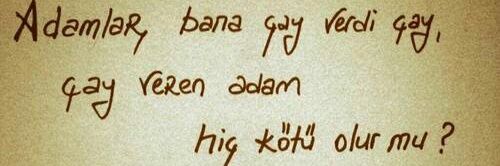 Adamlar, bana çay verdi çay,
çay veren adam
hiç kötü olur mu?